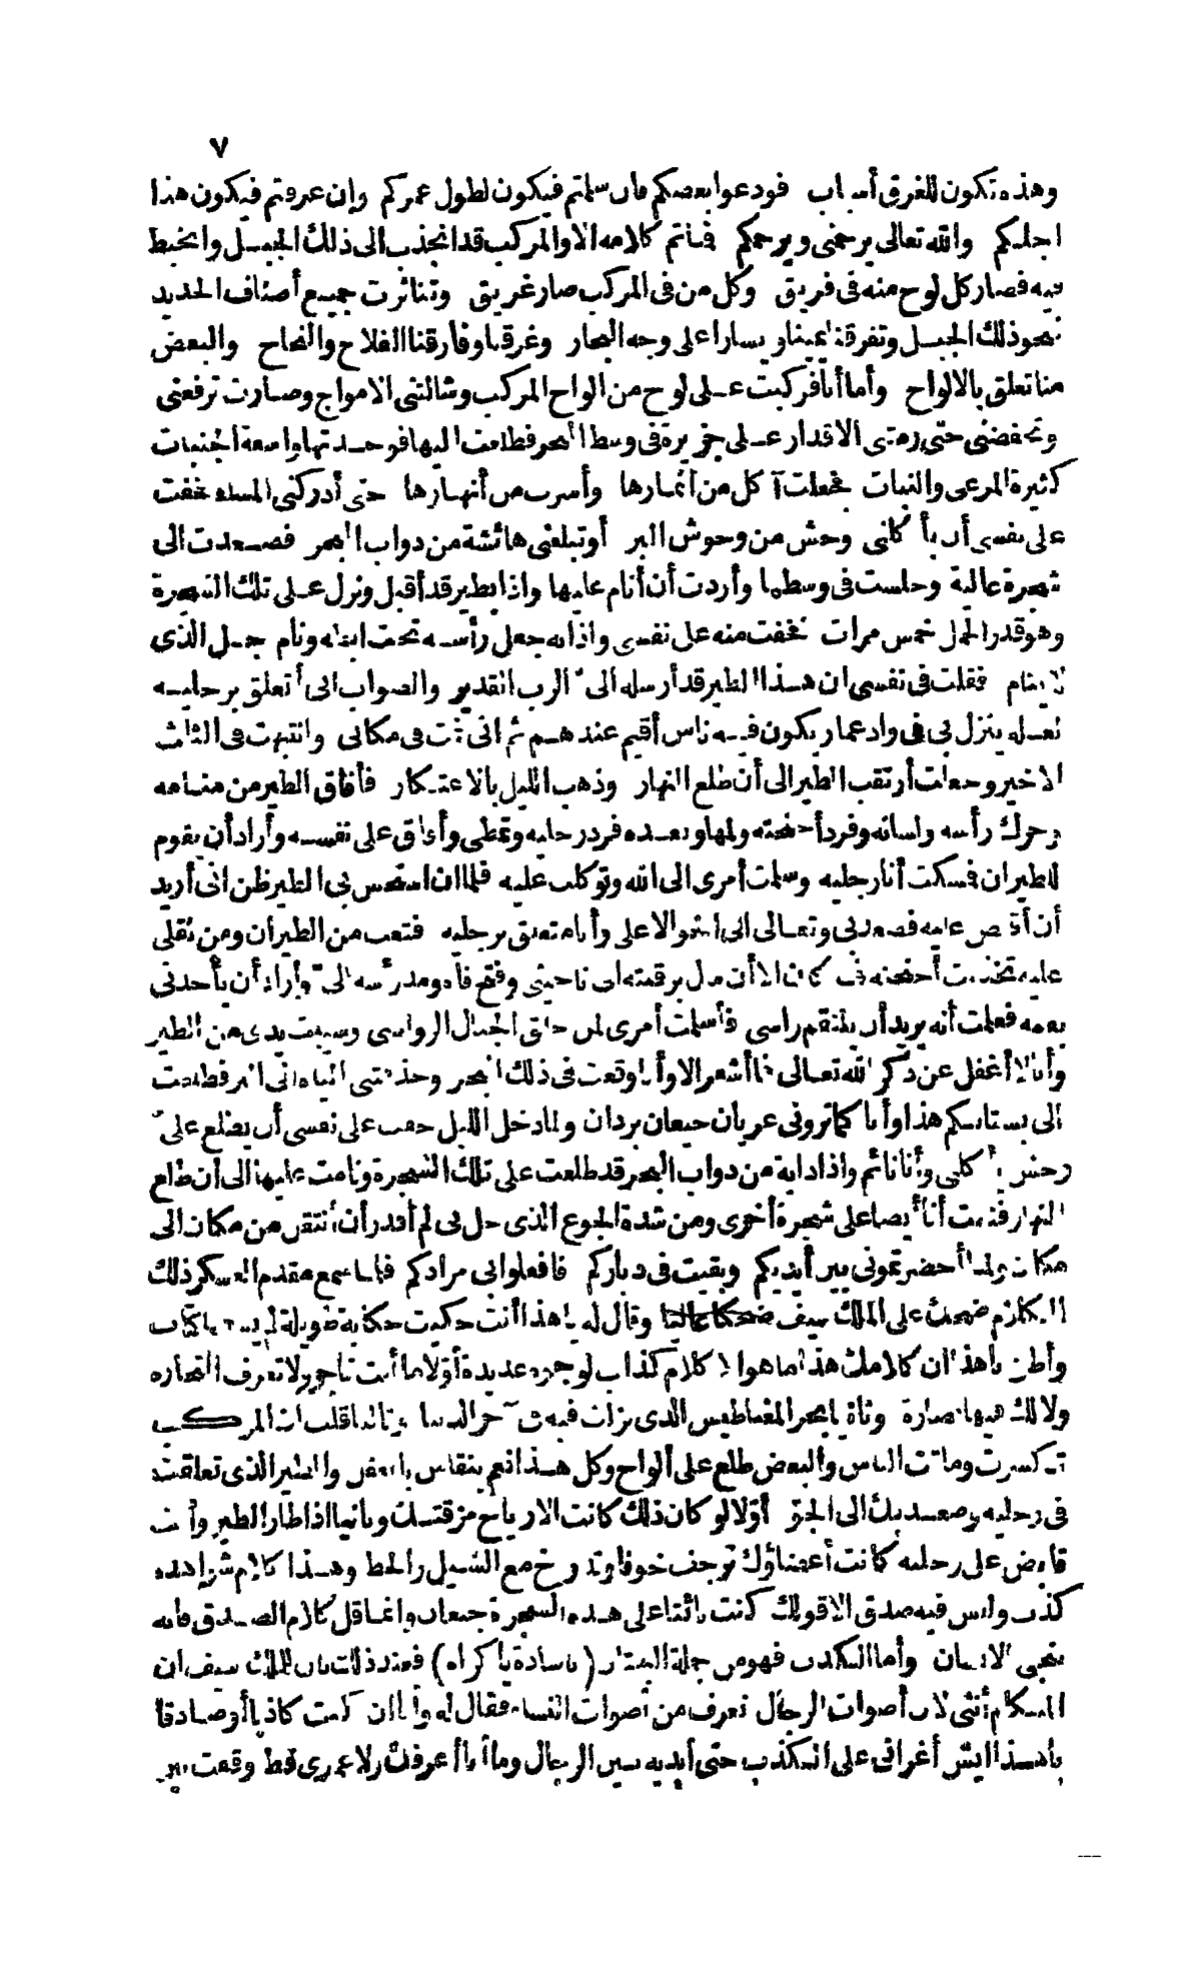 ٧
وهذه تكون للغرق أسباب فودعوا بعضكم فان سلمتم فيكون لطول عمركم وإن غرقتم فيكون هذا
اجلكم والله تعالى يرحمنى ويرحمكم فاتم كلامه الا والمركب قد انجذب الى ذلك الجبل وانخبط
فيه فصار كل لوح منه فى فريق وكل من فى المركب صار غريق وتناثرت جميع أصناف الحديد
نحو ذلك الجبل وتفرقنا يمينا ويسارا على وجه البحار وغرقنا وفارقنا الفلاح والنجاح والبعض
منا تعلق بالالواح وأما أنا فركبت على لوح من الواح المركب وشالتنى الامواج وصارت ترفعنى
وتخفضنى حتى رمتنى الاقدار على جزيرة فى وسط البحر فطلعت اليها فوجدتها واسعة الجنبات
كثيرة المرعى والنبات فجعلت آكل من أثمارها وأشرب من أنهارها حتى أدركنى المساء فخفت
على نفسى أن يأكلنى وحش من وحوش البر أو تبلغنى هائشة من دواب البحر فصعدت الى
شجرة عالية وجلست فى وسطها وأردت أن أنام عليها واذا بطير قد أقبل ونزل على تلك الشجرة
وهو قدر الجمل خمس مرات فخفت منه على نفسى واذا به جعل رأسه تحت ابطه ونام جل الذى
لا ينام فقلت فى نفسى ان هذا الطير قد أرسله الىّ الرب القدير والصواب انى أتعلق برجليه
لعله ينزل بى فى واد عمار يكون فيه ناس أقيم عندهم ثم انى نمت فى مكانى وانتبهت فى الثلث
الاخير وجعلت أرتقب الطير الى أن طلع النهار وذهب الليل بالاعتكار فأفاق الطير من منامه
وحرك رأسه ولسانه وفرد أجنحته ولمها وبعده فرد رجليه وتمطى وأفاق على نفسه وأراد أن يقوم
للطيران فمسكت أنا رجليه وسلمت أمرى الى الله وتوكلت عليه فلما ان استحس بى الطير ظن انى أريد
أن أقبض عليه فصعد بى وتعالى الى الجو الاعلى وأنا متعلق برجليه فتعب من الطيران ومن ثقلى
عليه تخذلت أجنحته فما كان الا أن مال برقبته الى ناحيتى وفتح فاه ومد رأسه الىّ وأراد أن يأخذنى
بفمه فعلمت أنه يريد أن يلتقم راسى فأسلمت أمرى لمن خلق الجبال الرواسى وسيبت يدى من الطير
وأنا لا أغفل عن ذكر الله تعالى فما أشعر الا وأنا وقعت فى ذلك البحر وحذفتنى المياه الى البر فطلعت
الى بستانكم هذا وأنا كما ترونى عريان جيعان بردان ولما دخل الليل خفت على نفسى أن يطلع علىّ
وحش يأكلنى وأنا نائم واذا دابة من دواب البحر قد طلعت على تلك الشجرة ونامت عليها الى أن طلع
النهار فنمت أنا أيضا على شجرة أخرى ومن شدة الجوع الذى حل بى لم أقدر أن أنتقل من مكان الى
مكان ولما أحضرتمونى بين أيديكم وبقيت فى دياركم فافعلوا بى مرادكم فلما سمع مقدم العسكر ذلك
الكلام ضحك على الملك سيف ضحكا عاليا وقال له يا هذا أنت حكيت حكاية طويلة ليست باكتاب
وأظن يا هذا ان كلامك هذا ما هو الا كلام كذاب لوجوه عديدة أولا ما أنت تاجر ولا تعرف التجاره
ولا لك فيها اصارة وثانيا بحر المغناطيس الذى نزلت فيه فى آخر الدنيا وثالثا قلت ان المركب
تكسرت وماتت الناس والبعض طلع على ألواح وكل هذا نعم ينقاس بالعقل والطير الذى تعلقت
فى رجليه وصعد بك الى الجو أولا لو كان ذلك كانت الارياح مزقتك وثانيا اذا طار الطير وأنت
قابض على رجليه كانت أعضاؤك ترجف خوفا وتدوخ مع الشيل والحط وهذا كلام شواهده
كذب وليس فيه صدق الا قولك كنت بائتا على هذه الشجرة جيعان واغاقل كلام الصدق فانه
ينجى الانسان وأما الكذب فهو من جملة البهتان (يا سادة يا كرام) فعند ذلك بان للملك سيف ان
المتكلم أنثى لان أصوات الرجال تعرف من أصوات النساء فقال له وأنا ان كنت كاذبا أو صادقا
يا هذا ايش أغرانى على الكذب حتى أبديه بين الرجال وما أنا أعرفك ولا عمرى قط وقعت بين